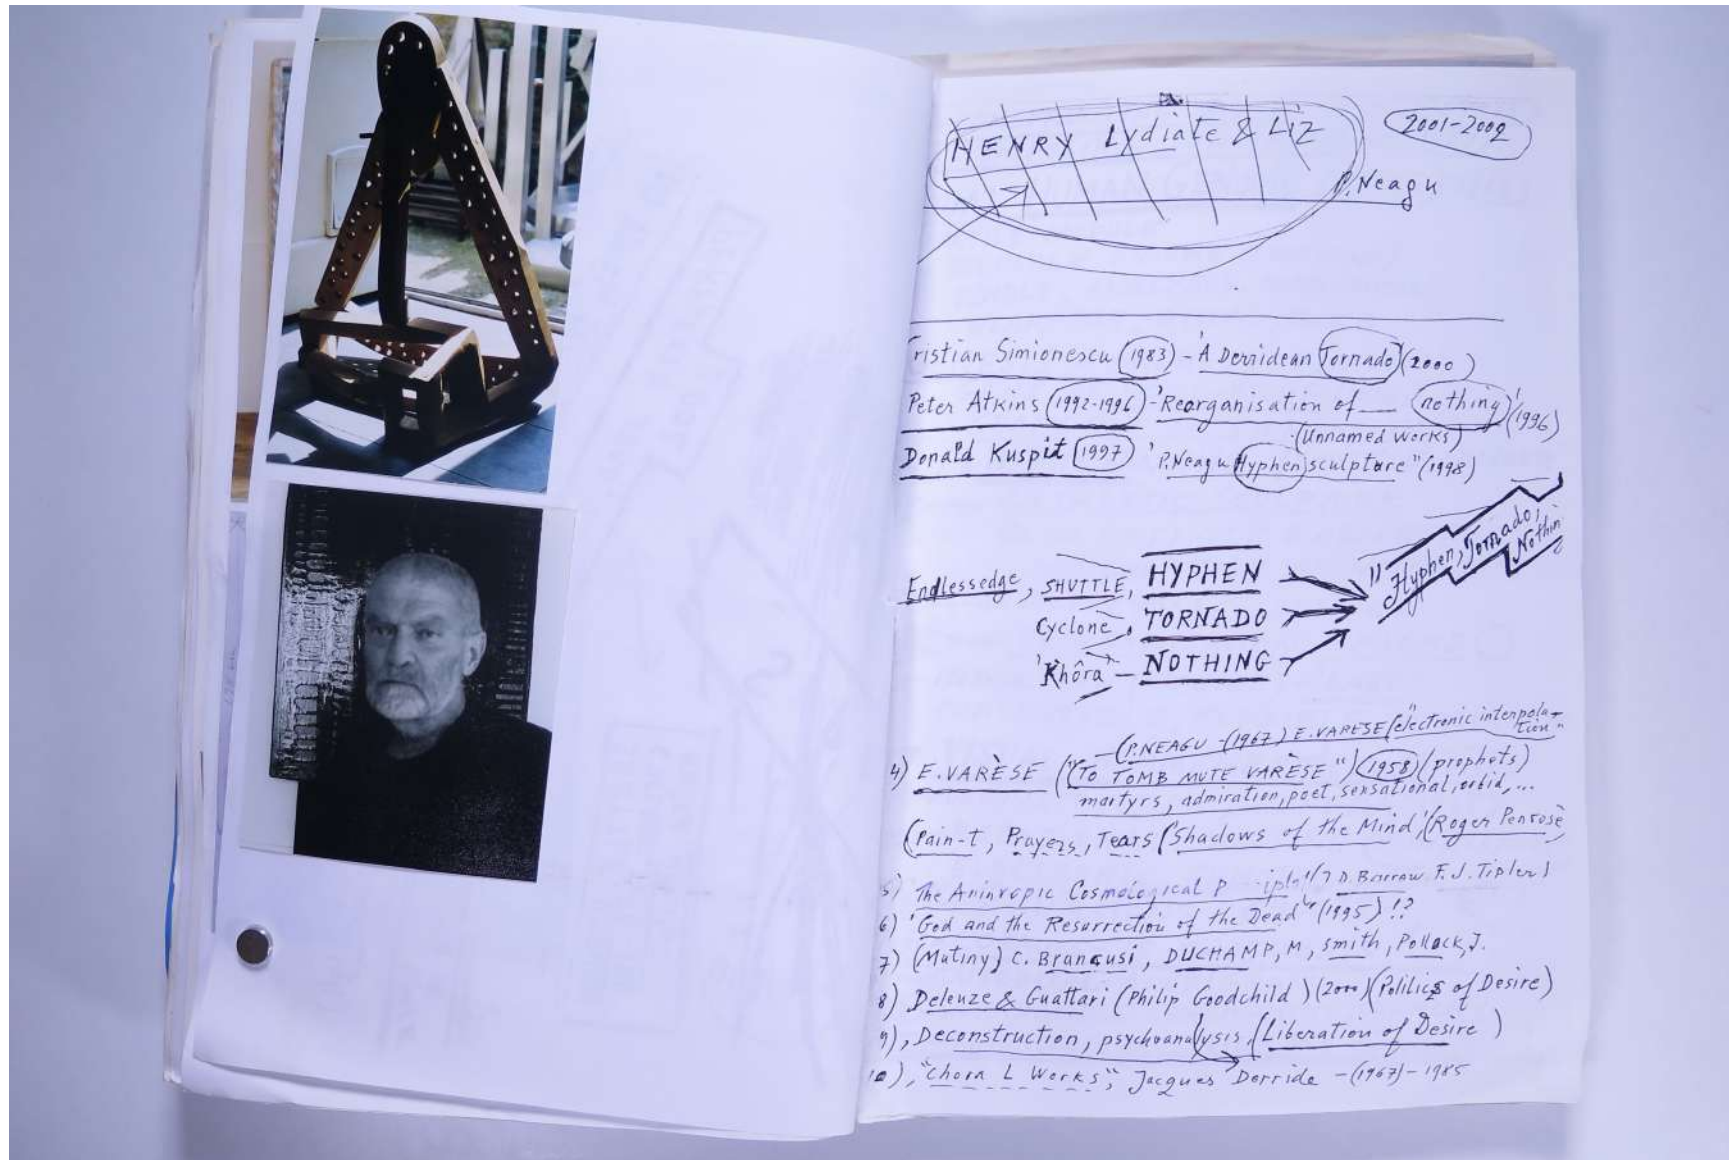 HENRY Lydiate & Liz
2001-2002
P. Neagu
ristian Simionescu (1983) - 'A Derridean Tornado' (2000)
Peter Atkins (1992-1996) - 'Reorganisation of __ (nothing)' (1996)
(Unnamed works)
Donald Kuspit (1997) 'P. Neagu Hyphen sculpture" (1998)
"Hyphen, Tornado,
Nothin
Endlessedge, SHUTTLE, HYPHEN
Cyclone, TORNADO
'Khôra' — NOTHING
— (P. NEAGU - (1967) E. VARESE ("electronic interpola-
tion"
4) E. VARÈSE ("TO TOMB MUTE VARÈSE") (1958) (prophets)
martyrs, admiration, poet, sensational, orbid, ...
(Pain-t, Prayers, Tears ('Shadows of the Mind', (Roger Penrose,
5) The Cosmological P iple D. Barrow F. J. Tipler)
6) 'God and the Resurrection of the Dead" (1995) !?
7) (Mutiny) C. Brancusi, DUCHAMP, M, Smith, Pollock, J.
8) Deleuze & Guattari (Philip Goodchild) (2000) (Politics of Desire)
9), Deconstruction, psychoanalysis, (Liberation of Desire)
10), "Chora L Works", Jacques Derride - (1967) - 1985